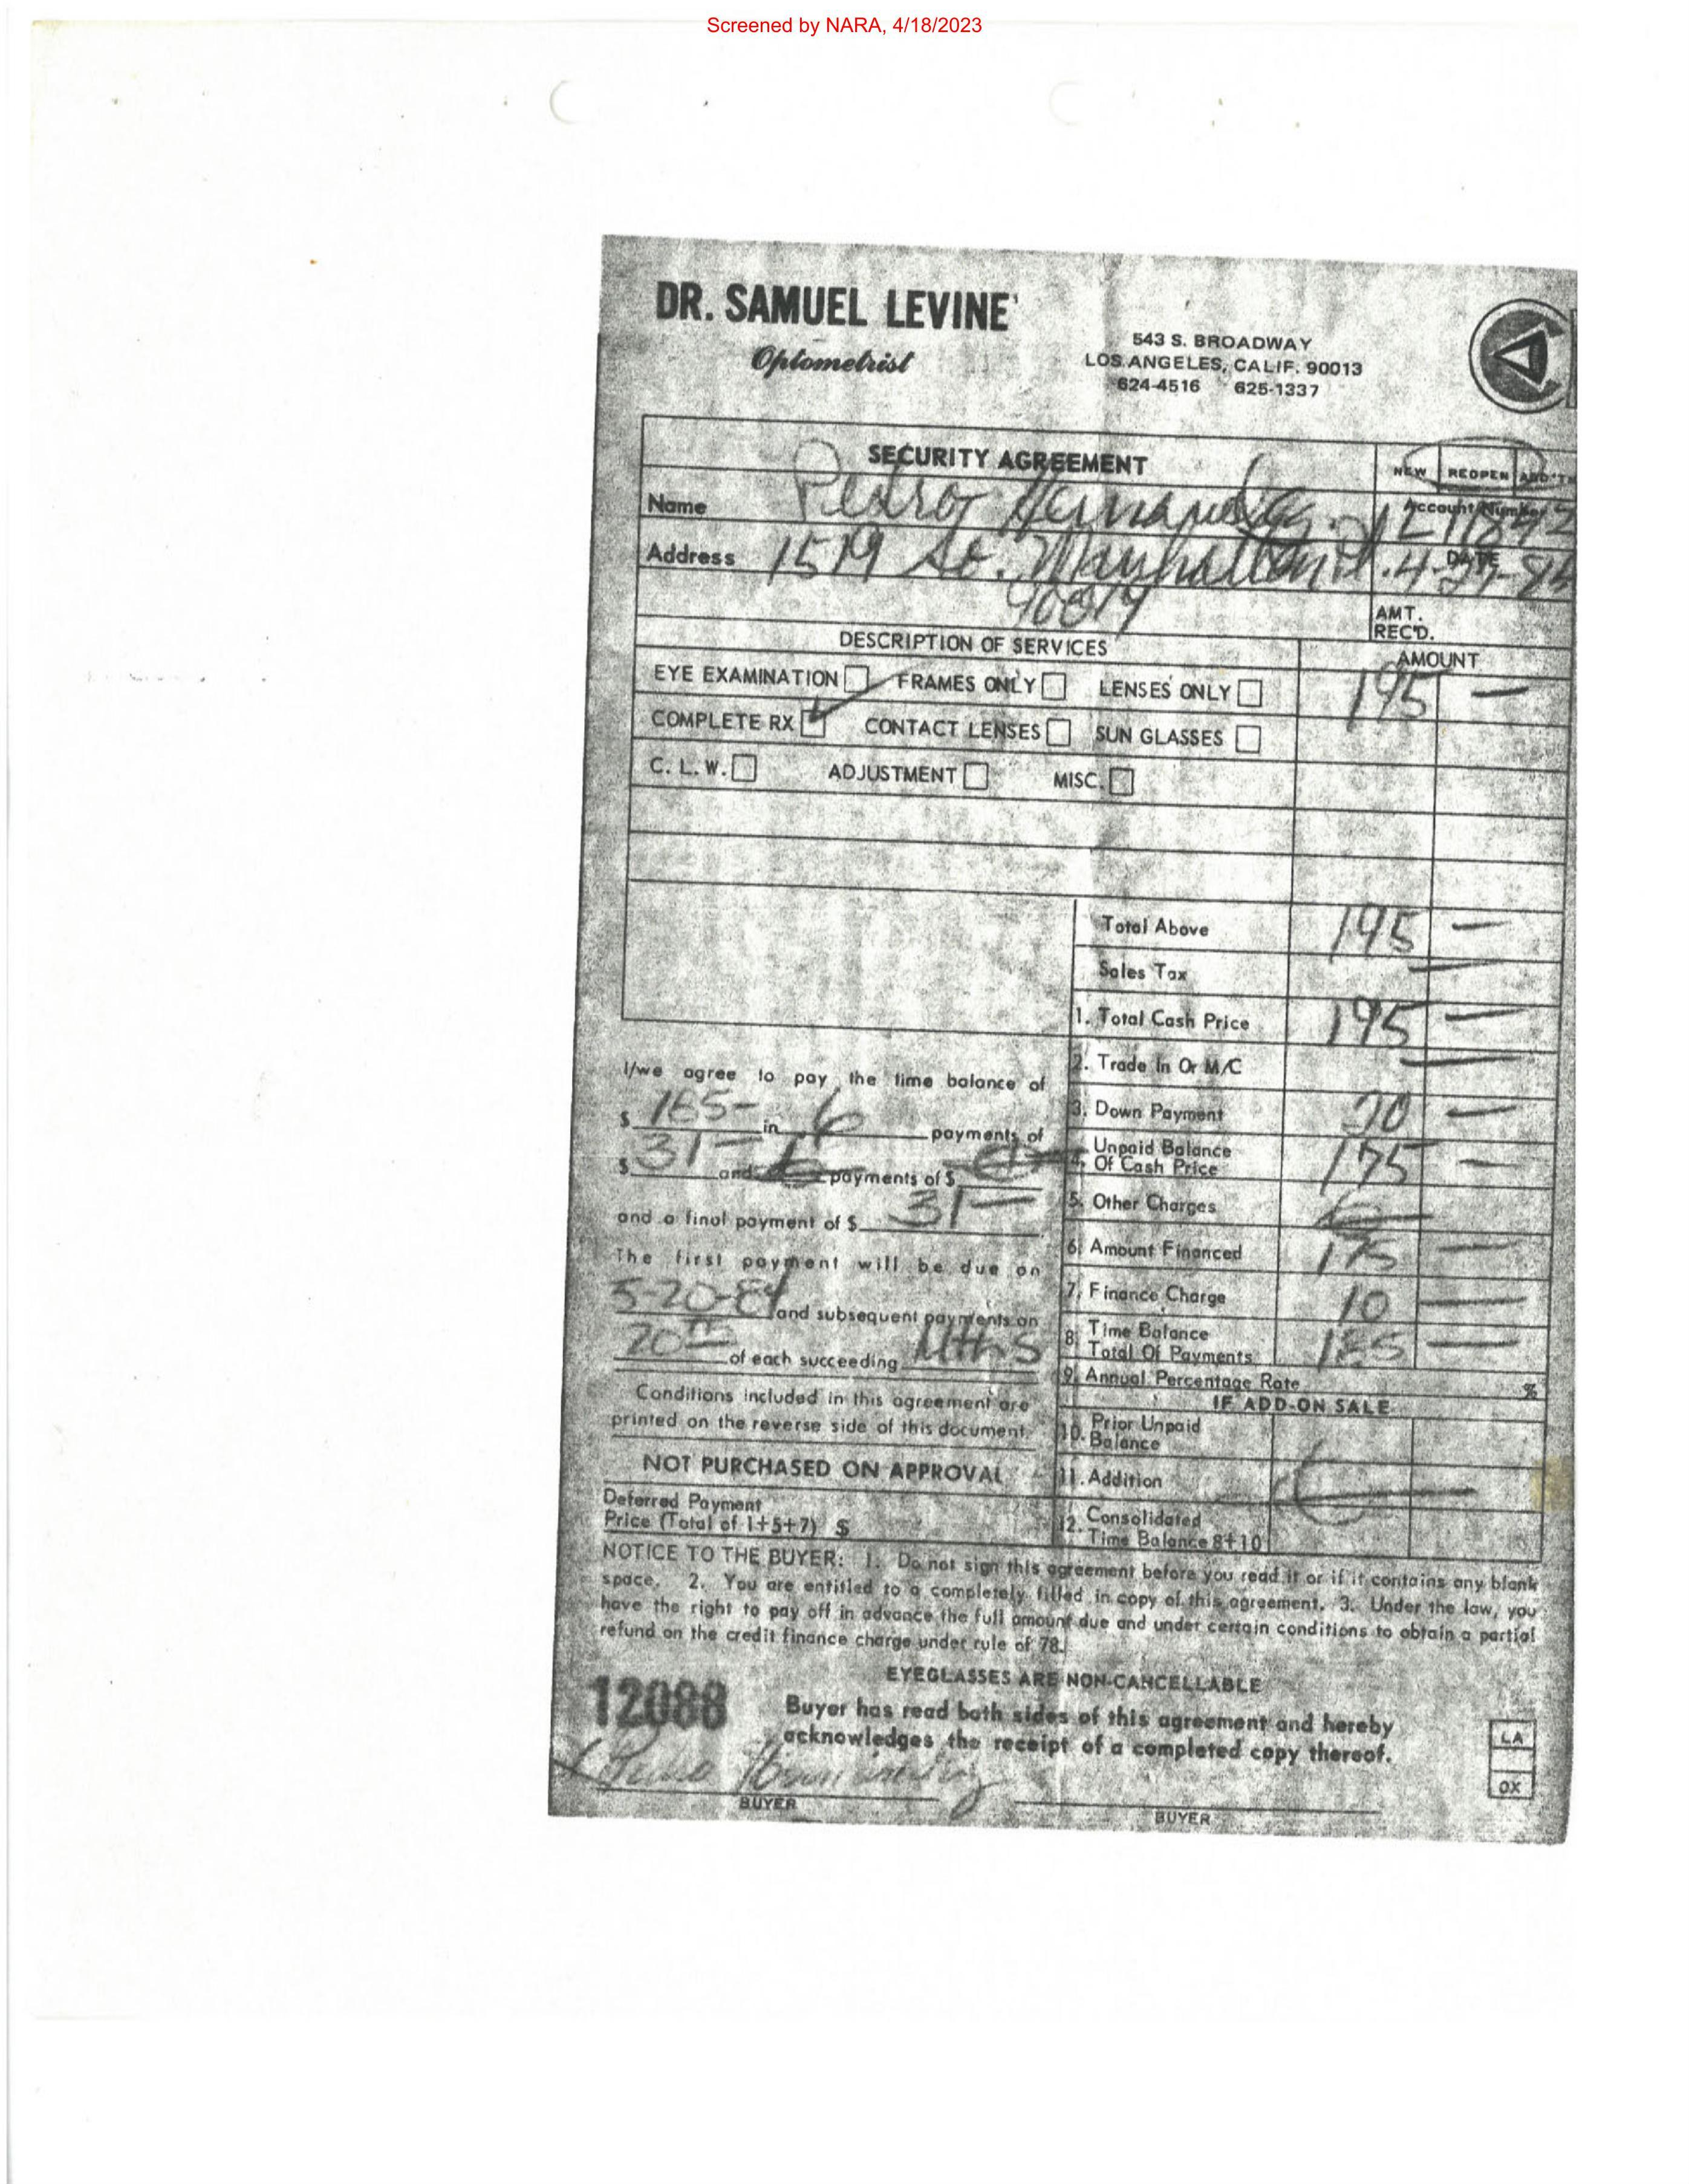 Screened by NARA, 4/18/2023
DR. SAMUEL LEVINE
Optometrist
543 S. BROADWAY
LOS ANGELES, CALIF. 90013
624-4516 625-1337
SECURITY AGREEMENT
NEW REOPEN ADD'
Name Pedro Hernandez
Account Number
Address 1519 So. Manhattan Pl.
DATE 4-27-84
90019
AMT.
REC'D.
DESCRIPTION OF SERVICES
AMOUNT
EYE EXAMINATION FRAMES ONLY LENSES ONLY 195 —
COMPLETE RX CONTACT LENSES SUN GLASSES
C. L. W. ADJUSTMENT MISC.
Total Above 195 —
Sales Tax —
1. Total Cash Price 195 —
2. Trade In Or M/C —
3. Down Payment 20 —
4. Unpaid Balance
Of Cash Price 175 —
5. Other Charges
6. Amount Financed 175 —
7. Finance Charge 10 —
8. Time Balance
Total Of Payments 185 —
9. Annual Percentage Rate %
IF ADD-ON SALE
10. Prior Unpaid
Balance
11. Addition
12. Consolidated
Time Balance 8+10
I/we agree to pay the time balance of
$ 185- in 6 payments of
$ 31- and payments of $
and a final payment of $ 31-
The first payment will be due on
5-20-84 and subsequent payments on
20th of each succeeding Mths
Conditions included in this agreement are
printed on the reverse side of this document.
NOT PURCHASED ON APPROVAL
Deferred Payment
Price (Total of 1+5+7) $
NOTICE TO THE BUYER: 1. Do not sign this agreement before you read it or if it contains any blank
space. 2. You are entitled to a completely filled in copy of this agreement. 3. Under the law, you
have the right to pay off in advance the full amount due and under certain conditions to obtain a partial
refund on the credit finance charge under rule of 78.
EYEGLASSES ARE NON-CANCELLABLE
12088
Buyer has read both sides of this agreement and hereby
acknowledges the receipt of a completed copy thereof.
LA
OX
X Pedro Hernandez
BUYER
BUYER